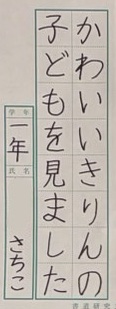 かわいいきりんの
子どもを見ました
学年
一年
氏名
さちこ